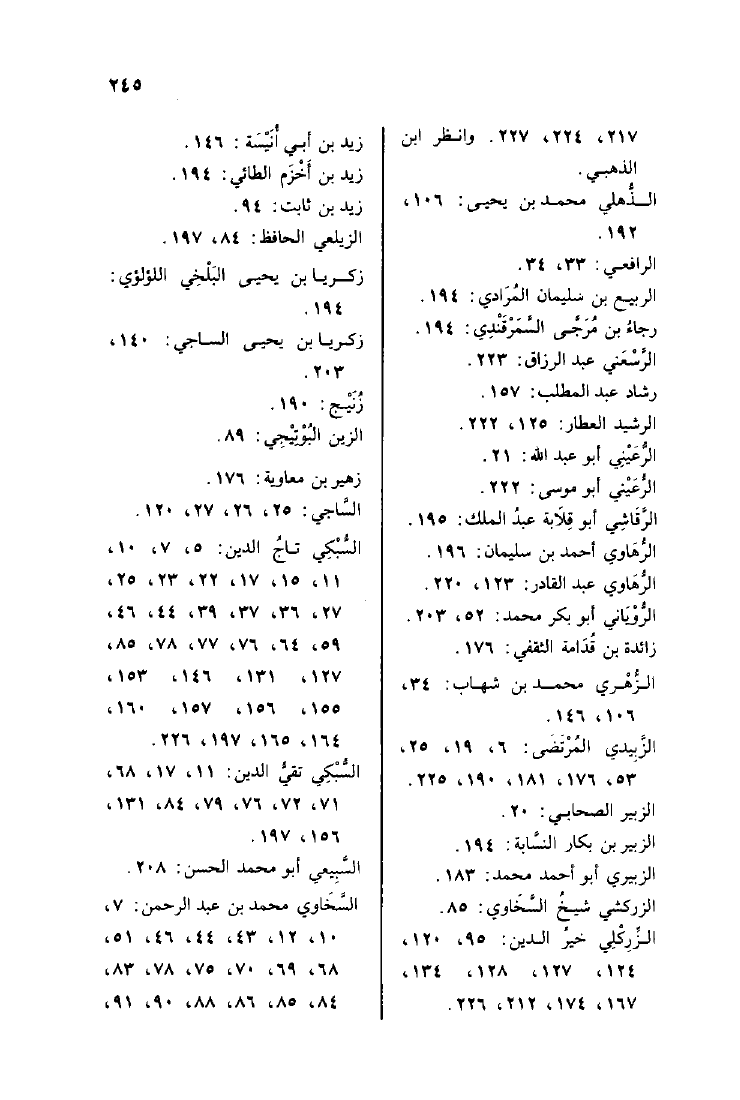 ٢٤٥
٢١٧، ٢٢٤، ٢٢٧. وانظر ابن
الذهبي.
الـذُّهلي محمـد بن يحيـى: ١٠٦،
١٩٢.
الرافعي: ٣٣، ٣٤.
الربيع بن سليمان المُرَادي: ١٩٤.
رجاءُ بن مُرَجَّى السَّمَرْقَنْدِي: ١٩٤.
الرَّسْعَني عبد الرزاق: ٢٢٣.
رشاد عبد المطلب: ١٥٧.
الرشيد العطار: ١٢٥، ٢٢٢.
الرُّعَيْنِي أبو عبد الله: ٢١.
الرُّعَيْني أبو موسى: ٢٢٢.
الرَّقَاشي أبو قِلَابة عبدُ الملك: ١٩٥.
الرُّهَاوي أحمد بن سليمان: ١٩٦.
الرُّهَاوي عبد القادر: ١٢٣، ٢٢٠.
الرُّوْيَاني أبو بكر محمد: ٥٢، ٢٠٣.
زائدة بن قُدَامة الثقفي: ١٧٦.
الـزُّهْـري محمـــد بن شهـاب: ٣٤،
١٠٦، ١٤٦.
الزَّبِيدي المُرْتَضَى: ٦، ١٩، ٢٥،
٥٣، ١٧٦، ١٨١، ١٩٠، ٢٢٥.
الزبير الصحابي: ٢٠.
الزبير بن بكار النسَّابة: ١٩٤.
الزبيري أبو أحمد محمد: ١٨٣.
الزركشي شيخُ السَّخَاوي: ٨٥.
الـزِّرِكْلِي خيرُ الـدين: ٩٥، ١٢٠،
١٢٤، ١٢٧، ١٢٨، ١٣٤،
١٦٧، ١٧٤، ٢١٢، ٢٢٦.
زيد بن أبي أُنَيْسَة: ١٤٦.
زيد بن أَخْزَم الطائي: ١٩٤.
زيد بن ثابت: ٩٤.
الزيلعي الحافظ: ٨٤، ١٩٧.
زكـــريا بن يحيـى البَلْخِي اللؤلؤي:
١٩٤.
زكـريا بن يحيـى الســاجي: ١٤٠،
٢٠٣.
زُنَيْـج: ١٩٠.
الزين البُوْتِيْجِي: ٨٩.
زهير بن معاوية: ١٧٦.
السَّاجي: ٢٥، ٢٦، ٢٧، ١٢٠.
السُّبْكِي تـاجُ الدين: ٥، ٧، ١٠،
١١، ١٥، ١٧، ٢٢، ٢٣، ٢٥،
٢٧، ٣٦، ٣٧، ٣٩، ٤٤، ٤٦،
٥٩، ٦٤، ٧٦، ٧٧، ٧٨، ٨٥،
١٢٧، ١٣١، ١٤٦، ١٥٣،
١٥٥، ١٥٦، ١٥٧، ١٦٠،
١٦٤، ١٦٥، ١٩٧، ٢٢٦.
السُّبْكِي تقيُّ الدين: ١١، ١٧، ٦٨،
٧١، ٧٢، ٧٦، ٧٩، ٨٤، ١٣١،
١٥٦، ١٩٧.
السَّبِيعي أبو محمد الحسن: ٢٠٨.
السَّخَاوي محمد بن عبد الرحمن: ٧،
١٠، ١٢، ٤٣، ٤٤، ٤٦، ٥١،
٦٨، ٦٩، ٧٠، ٧٥، ٧٨، ٨٣،
٨٤، ٨٥، ٨٦، ٨٨، ٩٠، ٩١،